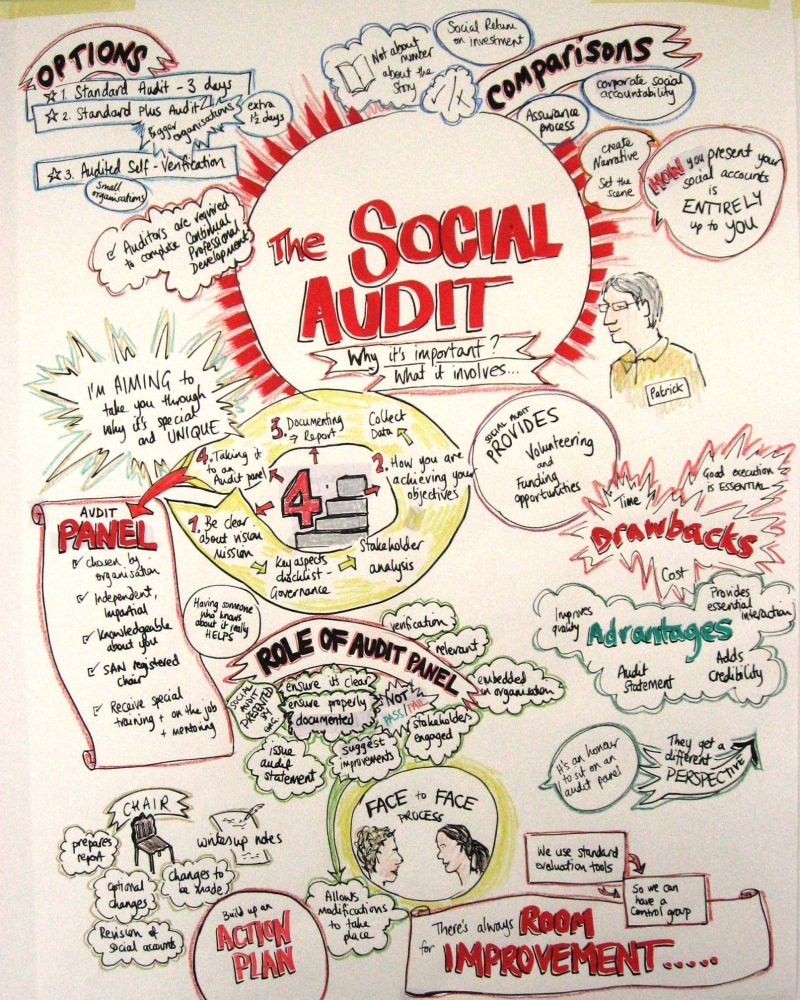 OPTIONS
☆ 1. Standard Audit - 3 days
☆ 2. Standard Plus Audit
Bigger
organisations
extra
1½ days
☆ 3. Audited Self - Verification
Small
organisations
Auditors are required
to complete Continual
Professional
Development
Not about
number
about the
story
Social Return
on investment
comparisons
corporate social
accountability
Assurance
process
create
Narrative
Set the
scene
HOW you present your
social accounts
is
ENTIRELY
up to YOU
The SOCIAL
AUDIT
Why it's important?
What it involves...
Patrick
I'M AIMING to
take you through
why it's special
and UNIQUE
3. Documenting
⇒ Report
Collect
Data
4. Taking it
to an
Audit panel
2. How you are
achieving your
objectives
4
1. Be clear
about vision
Mission
Key aspects
checklist -
Governance
Stakeholder
analysis
SOCIAL AUDIT
PROVIDES
Volunteering
and
Funding
opportunities
Time
Good execution
is ESSENTIAL
Drawbacks
Cost
Improves
quality
Provides
essential
interaction
Advantages
Audit
Statement
Adds
Credibility
AUDIT
PANEL
chosen by
organisation
Independent,
Impartial
Knowledgeable
about you
SAN registered
chair
Receive special
training + on the job
+ mentoring
Having someone
who knows
about it really
HELPS
ROLE OF AUDIT PANEL
verification
relevant
embedded
in organisation
SOCIAL
AUDIT
PRESENTED
BY
ORG.
ensure it's clear
ensure properly
documented
NOT
PASS/FAIL
stakeholders
engaged
issue
audit
statement
suggest
improvements
It's an honour
to sit on an
audit panel
They get a
different
PERSPECTIVE
CHAIR
prepares
report
writes up notes
optional
changes
changes to
be made
Revision of
social accounts
FACE to FACE
PROCESS
Allows
modifications
to take
place
Build up an
ACTION
PLAN
We use standard
evaluation tools
So we can
have a
Control group
There's always ROOM
for IMPROVEMENT.....